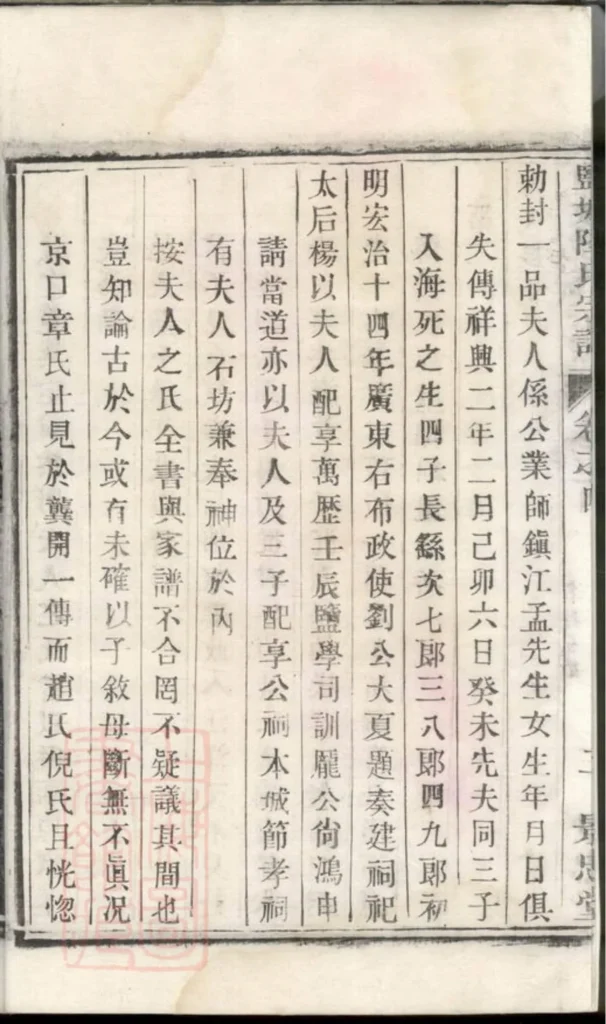 鹽城陸氏宗譜 卷之四 二 景忠堂
勅封一品夫人係公業師鎮江孟先生女生年月日俱
失傳祥興二年二月己卯六日癸未先夫同三子
入海死之生四子長繇次七郎三八郎四九郎初
明宏治十四年廣東右布政使劉公大夏題奏建祠祀
太后楊以夫人配享萬歷壬辰鹽學司訓龐公尙鴻申
請當道亦以夫人及三子配享公祠本城節孝祠
有夫人石坊兼奉神位於內
按夫人之氏全書與家譜不合罔不疑議其間也
豈知論古於今或有未確以子敘母斷無不眞况
京口章氏止見於龔開一傳而趙氏倪氏且恍惚